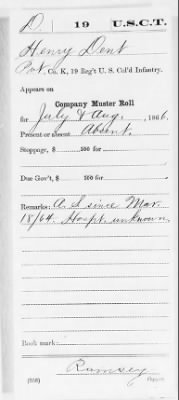 D. | 19 | U.S.C.T.
Henry Dent
Pvt, Co. K, 19 Reg't U. S. Col'd Infantry.
Appears on
Company Muster Roll
for July & Aug, 1866.
Present or absent Absent.
Stoppage, $ 100 for
Due Gov't, $ 100 for
Remarks: A. S since Mar
18/64. Hospt. unknown.
Book mark:
Ramsey
(358) Copyist.